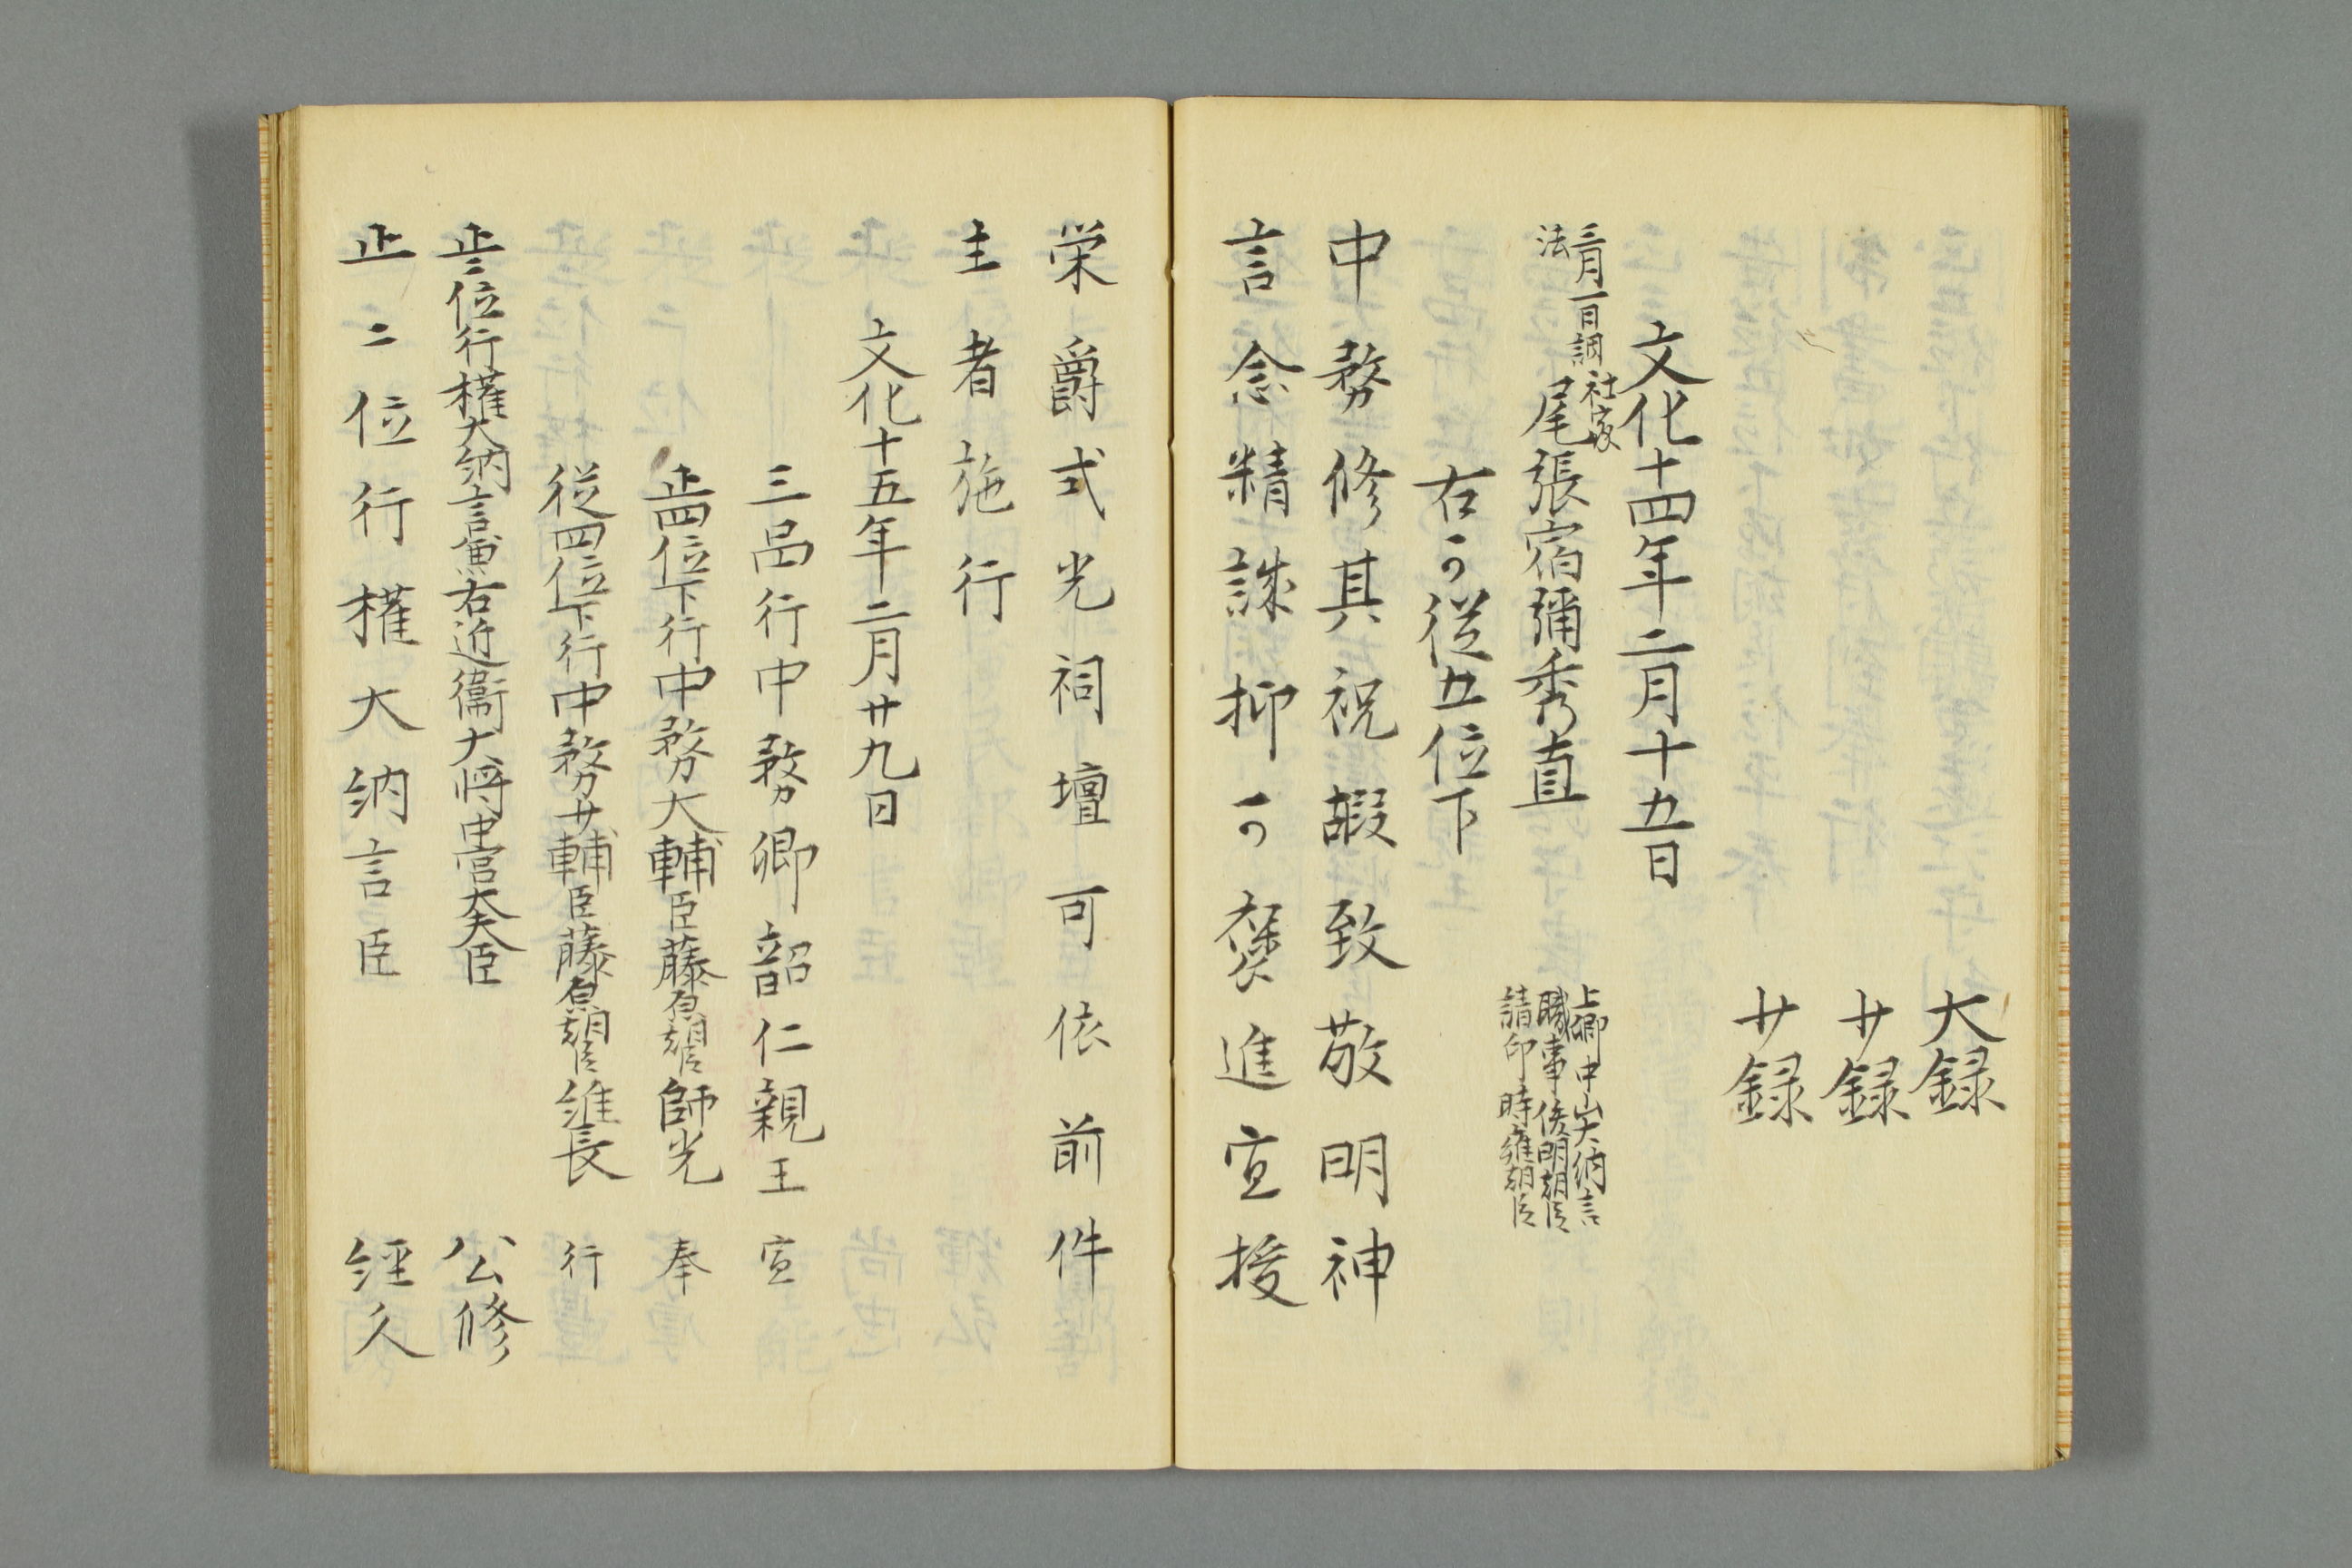 大録
少録
少録
文化十四年二月十五日
三月一日調
法
社家
尾張宿彌秀直
上卿中山大納言
職事俊明朝臣
請印時雍朝臣
右可従五位下
中務修其祝嘏致敬明神
言念精誠抑可褒進宜授
栄爵式光祠壇可依前件
主者施行
文化十五年二月廿九日
三品行中務卿韶仁親王宣
正四位下行中務大輔臣藤原朝臣師光奉
従四位下行中務少輔臣藤原朝臣維長行
正二位行権大納言兼右近衛大将中宮大夫臣公修
正二位行権大納言臣経久